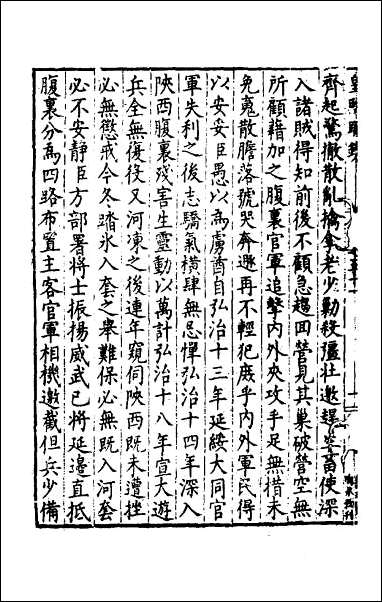 齊起驚撤散亂擒拿老少勦殺彊壮邀趕頭畜使深
入諸賊得知前後不顧急趨回營見其巢破營空無
所顧藉加之腹裏官軍追擊内外夾攻手足無措未
免鬼散膽落號哭奔遯再不輕犯庻乎内外軍民得
以安妥臣愚以為虜酋自弘治十三年延綏大同官
軍失利之後志驕氣横肆無忌憚弘治十四年深入
陜西腹裏殘害生靈動以萬計弘治十八年宣大遊
兵全無復役又河凍之後連年窺伺陜西既未遭挫
必無懲戒今冬踏氷入套之舉難保必無既入河套
必不安静臣方部署将士振揚威武已将延邊直抵
腹裏分為四路布置主客官軍相機邀截但兵少備